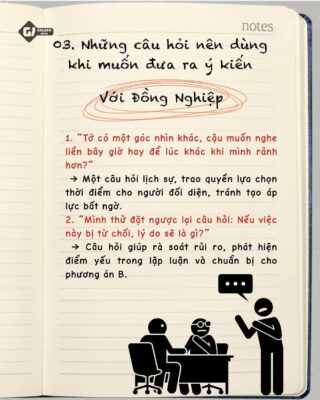 GJ
notes
03. Những câu hỏi nên dùng
khi muốn đưa ra ý kiến
Với Đồng Nghiệp
1. “Tớ có một góc nhìn khác, cậu muốn nghe
liền bây giờ hay để lúc khác khi mình rảnh
hơn?”
→ Một câu hỏi lịch sự, trao quyền lựa chọn
thời điểm cho người đối diện, tránh tạo áp
lực bất ngờ.
2. “Mình thử đặt ngược lại câu hỏi: Nếu việc
này bị từ chối, lý do sẽ là gì?”
→ Câu hỏi giúp rà soát rủi ro, phát hiện
điểm yếu trong lập luận và chuẩn bị cho
phương án B.